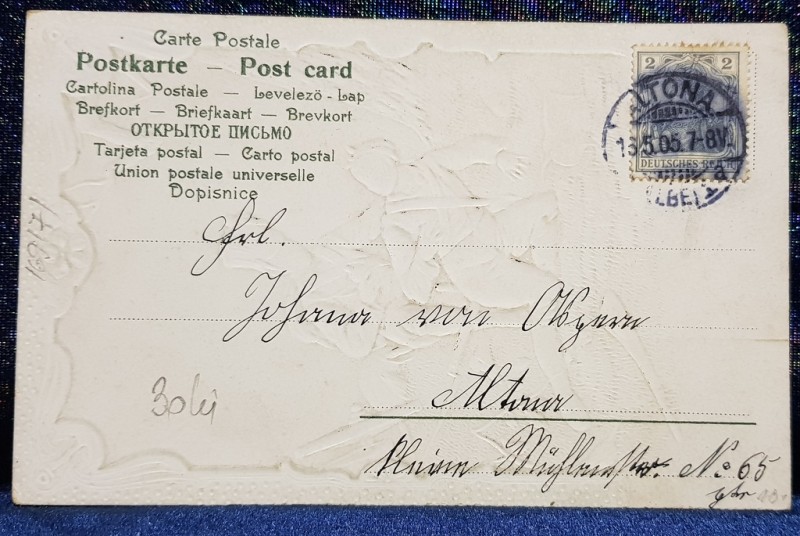 Carte Postale
Postkarte — Post card
Cartolina Postale — Levelező-Lap
Brefkort — Briefkaart — Brevkort
ОТКРЫТОЕ ПИСЬМО
Tarjeta postal — Carto postal
Union postale universelle
Dopisnice
2 2
DEUTSCHES REICH
ALTONA
5.05.7-8V.
(ELBE) 1
a
Frl.
Johana von Aspern
Altona
kleine Mühlenstr. No 65